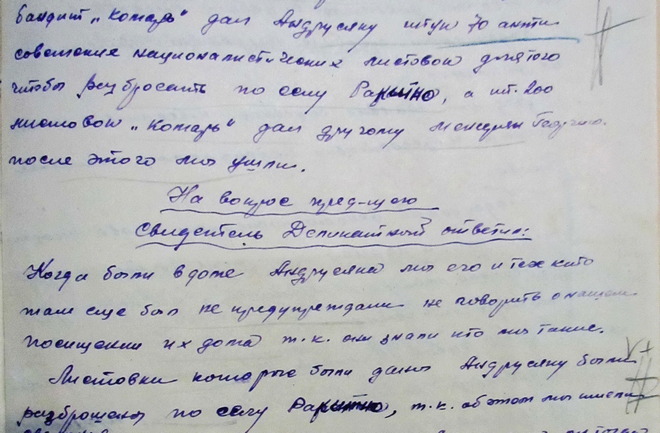 бандит „Комарь" дал Андрусяку штук 70 анти
советских националистических листовок для того
чтобы разбросать по селу Ракытно, а шт. 200
листовок „Комарь" дал другому Георгию.
после этого мы ушли.
На вопрос пред-щего
Свидетель ответил:
Когда были в доме Андрусяка мы его и тех кто
там еще был не предупреждали не говорить о нашем
посещении их дома т.к. они знали кто мы такие.
Листовки которые были даны Андрусяку были
разброшены по селу Ракытно, т.к. об этом мы имели